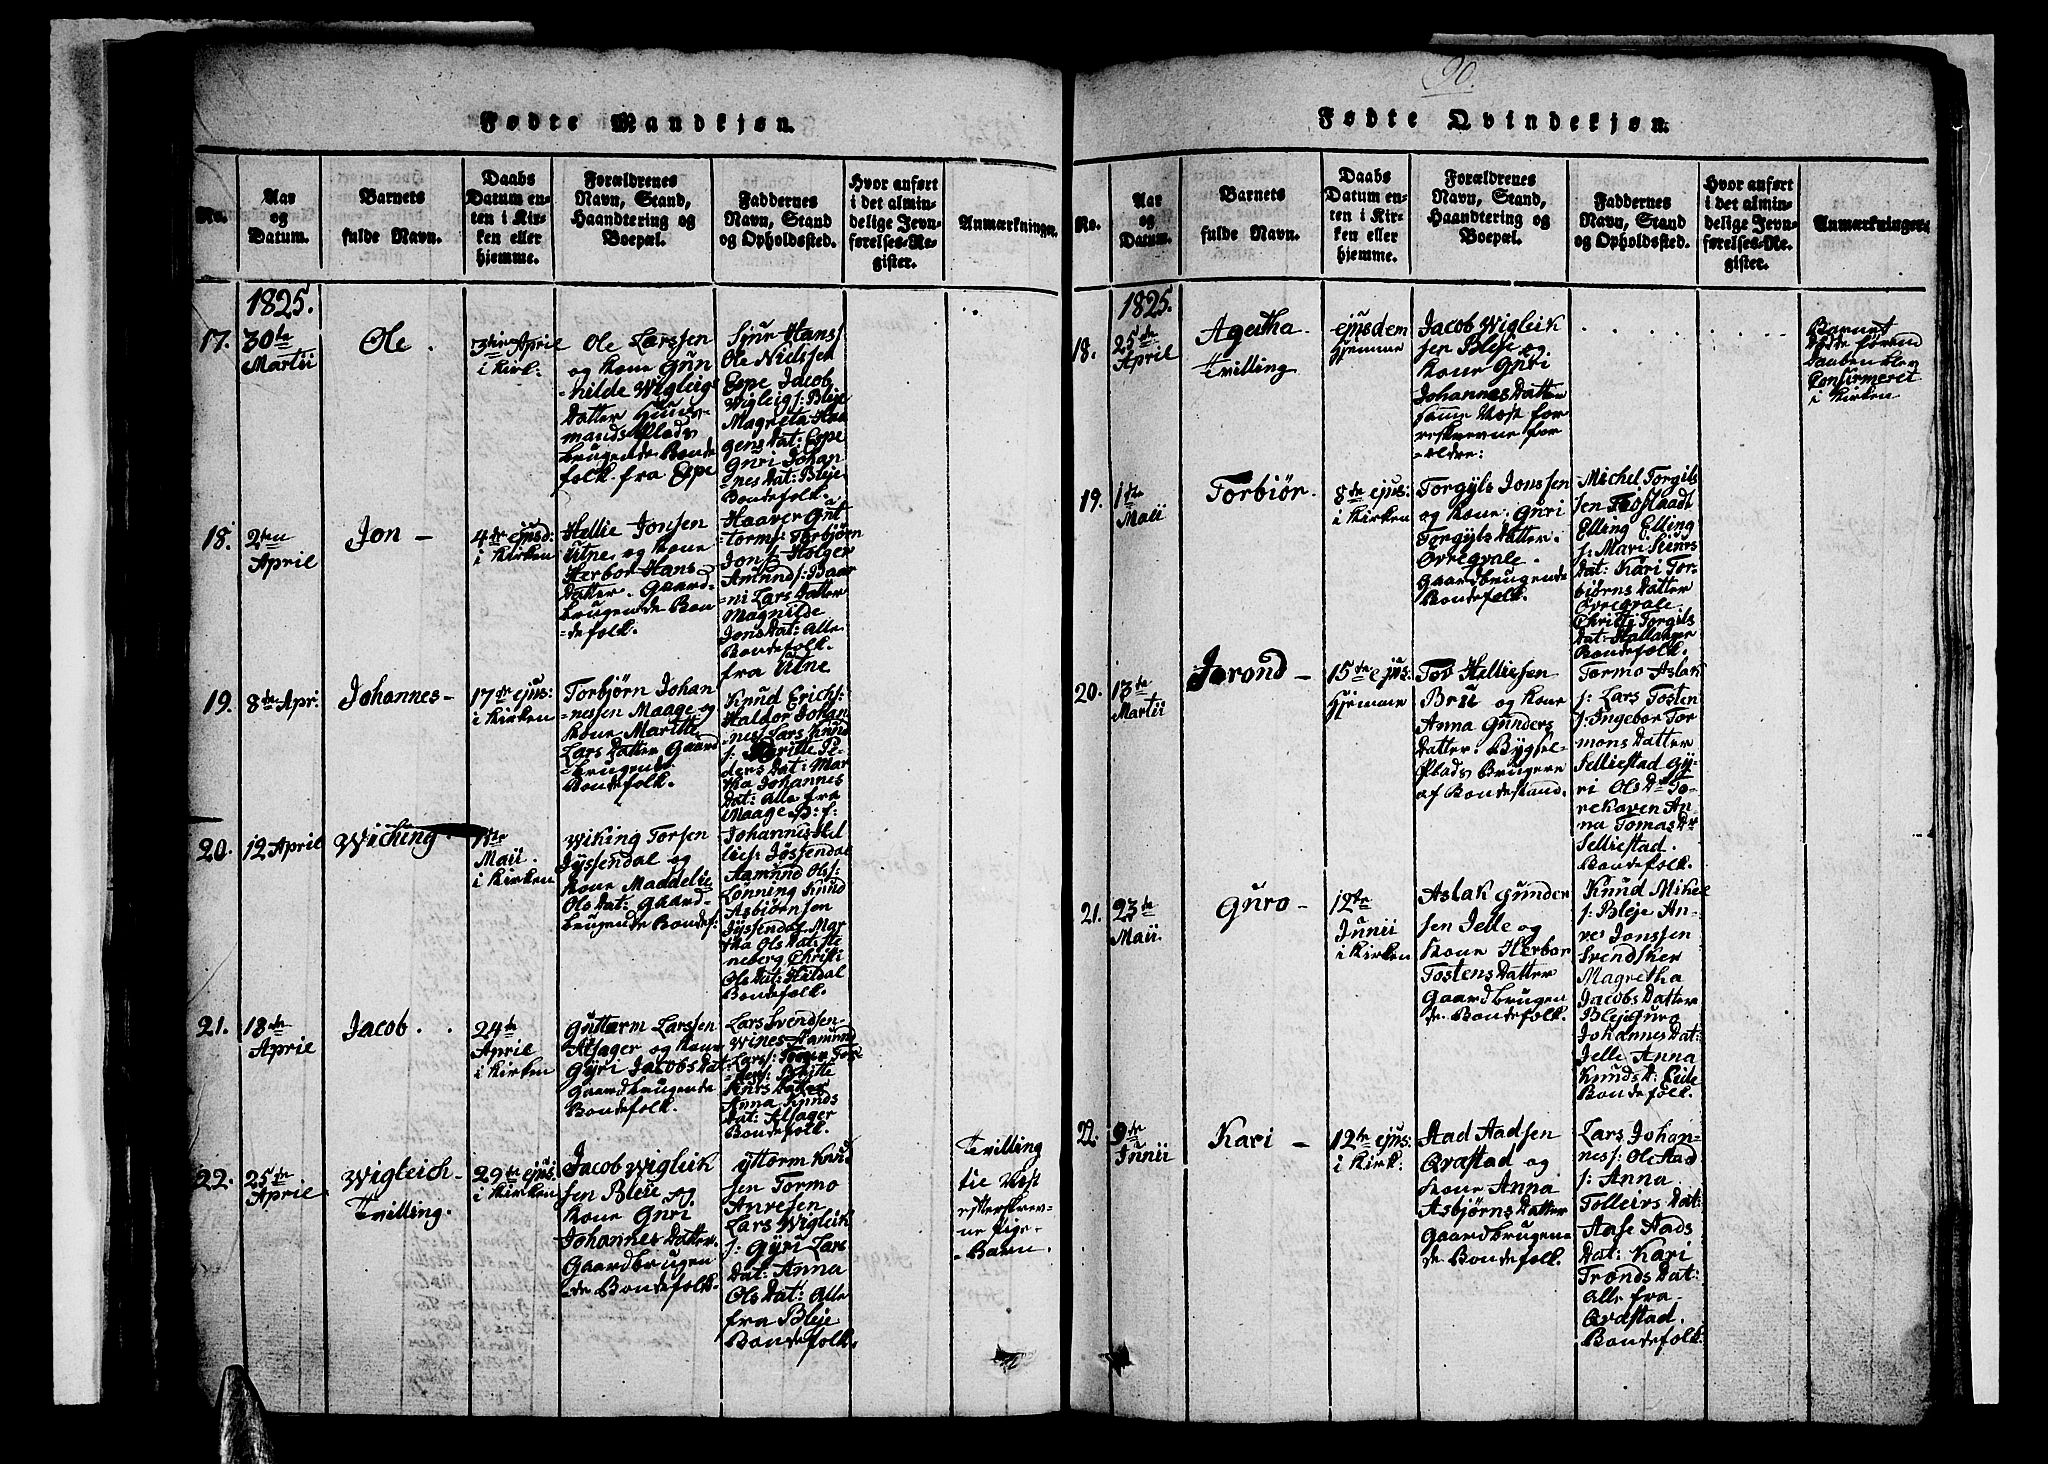 90.
Fødte Mandkjøn.
No.
Aar
og
Datum.
Barnets
fulde Navn.
Daabs
Datum en-
ten i Kir-
ken eller
hjemme.
Forældrenes
Navn, Stand,
Haandtering og
Boepæl.
Faddernes
Navn, Stand
og Opholdssted.
Hvor anført
i det almin-
delige Jevn-
førelses-Re-
gister.
Anmærkninger.
1825.
17.
30te
Martii
Ole.
3die April
i Kirk:
Ole Larssen
og Kone Gun
hilde Wigleigs
Datter Huus-
mands Plads
brugende Bonde
folk. fra Espe
Sjur Hans:
Ole Nielssen
Espe Jacob
Wigleigs: Bleje
Magreta Haa
gensDat: Espe
Guri Johan
nesDat: Bleje
Bondefolk.
18.
2den
April
Jon –
4de ejusd:
i Kirken
Hellie Jonsen
Utne og Kone
Herbor Hans
Datter. Gaard-
brugende Bon
=defolk.
Haaver Gut
torms: Torbjørn
Jons: Holger
Amunds: Baar
=ni Lars Datter
Magnilde
JonsDat: Alle
Bondefolk
fra Utne
19.
8de Apr.
Johannes –
17de ejus:
i Kirken
Torbjørn Johan
nessen Maage og
Kone Maritte
Lars Datter Gaard
=brugende
Bondefolk.
Knud Erichs:
Haldor Johan
nes: Lars Knud
s: Maritte Pe-
dersDat: Mar
tha Johannes
Dat: Alle fra
Maage B: f:
20.
12 April
Wiching
1ste
Maii.
i Kirken
Wiking Torsen
Jyssendal og
Kone Maddelie
OlsDat: Gaard-
brugende Bondef:
Johannes Hel
lies: Jøssendal
Aamund Ols:
Lønning Knud
Asbjørnsen
Jyssendal Mar
tha OlsDat: Ste
neberg Christi
OlsDat: Hildal
Bondefolk.
21.
18de
April
Jacob. .
24de
April
i Kirken
Guttorm Larssen
Alsager og Kone
Gyri JacobsDat:
Gaardbrugende
Bondefolk.
Lars Svendsen
Wines Aamund
Lars: Torger Tor
Britte
Siurs Datter
Anna Knuds
Dat: Alsager
Bondefolk.
22.
25de
April
Wigleich –
Tvilling.
29de ejus:
i Kirken
Jacob Wigleik
sen Bleie og
Kone Guri
Johannes Datter.
Gaardbrugen
de Bondefolk.
Gyttorm Knu
sen Tormo
Anresen
Lars Wigleik
s: Gyri Lars
Dat: Anna
OlsDat: Alle
fra Bleje
Bondefolk.
Tvilling
tie Næst
efterskrev-
ne Pige-
Barn.
Fødte Qvindekjøn.
No.
Aar
og
Datum.
Barnets
fulde Navn.
Daabs
Datum en-
ten i Kir-
ken eller
hjemme.
Forældrenes
Navn, Stand,
Haandtering og
Boepæl.
Faddernes
Navn, Stand
og Opholdssted.
Hvor anført
i det almin-
delige Jevn-
førelses-Re-
gister.
Anmærkninger.
1825.
18.
25de
April
Agetha
Tvilling
ejusdem
Hjemme
Jacob Wigleik
sen Bleje og
Kone Guri
Johannes Datter
samme Næst for
reskrevne for
=ældre:
Barnet
Døde førend
Daaben blev
Confirmeret
i Kirken
19.
1ste
Maii
Torbiør.
8de ejus:
i Kirken
Torgyls Jonssen
og Kone. Guri
Torgyls Datter.
Ovregvale
Gaardbrugende
Bondefolk.
Michel Torgils
sen
Elling Elling
s: Mari Siurs
Dat: Kari Tor-
biørns Datter
Ovregvale.
Christi Torgils
Dat: Hallanger
Bondefolk.
20.
13de
Martii
Jorond –
15de ejus:
Hjemme
Tov Helliesen
Bru og Kone
Anna Gunders
Datter. Bygsel-
Plads Brugere
af Bondestand.
Tormo Aslak
s: Lars Tosten
s: Ingebor Tor
mons Datter
Selliestad Gy-
ri Ols Dr To-
rekoven An-
na Tomas Dr
Selliestad.
Bondefolk.
21.
23de
Maii.
Guro –
12te
Junii
i Kirken
Aslak Gunder
sen Jelle og
Kone Herbor
Tostens Datter
Gaardbrugen
de Bondefolk.
Knud Mikel
s: Bleje An-
res Jonssen
Svendsker
Magretha
Jacobs Datter
Bleje Guro
JohannesDat:
Jelle Anna
Knuds D: Eide
Bondefolk.
22.
9de
Junii
Kari –
12te ejus:
i Kirk:
Aad Aadsen
Qvæstad og
Kone Anna
Asbjørns Datter
Gaardbrugen
de Bondefolk.
Lars Johan-
nes: Ole Aad
s: Anna
TolleirsDat:
Aase Aads
Dat: Kari
TrondsDat:
Alle fra
Qvæstad.
Bondefolk.